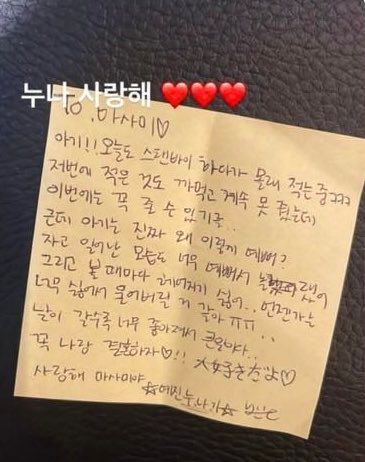 누나 사랑해 ❤️❤️❤️
마사미♡
아가!!! 오늘도 스탠바이 하다가 몰래 적는 중ㅋㅋㅋ
저번에 적은 것도 까먹고 계속 못 줬는데
이번에는 꼭 줄 수 있기를..
근데 아가는 진짜 왜 이렇게 예뻐?
자고 일어난 모습도 너무 예뻐서 랬어
그리고 볼 때마다 헤어지기 싫어.. 언젠가는
너무 싫어서 울어버릴 거 같아 ㅠㅠ..
날이 갈수록 너무 좋아져서 큰일이야..
꼭 나랑 결혼하자♡!! 大好きだよ♡
사랑해 마사미야
☆예진누나가☆